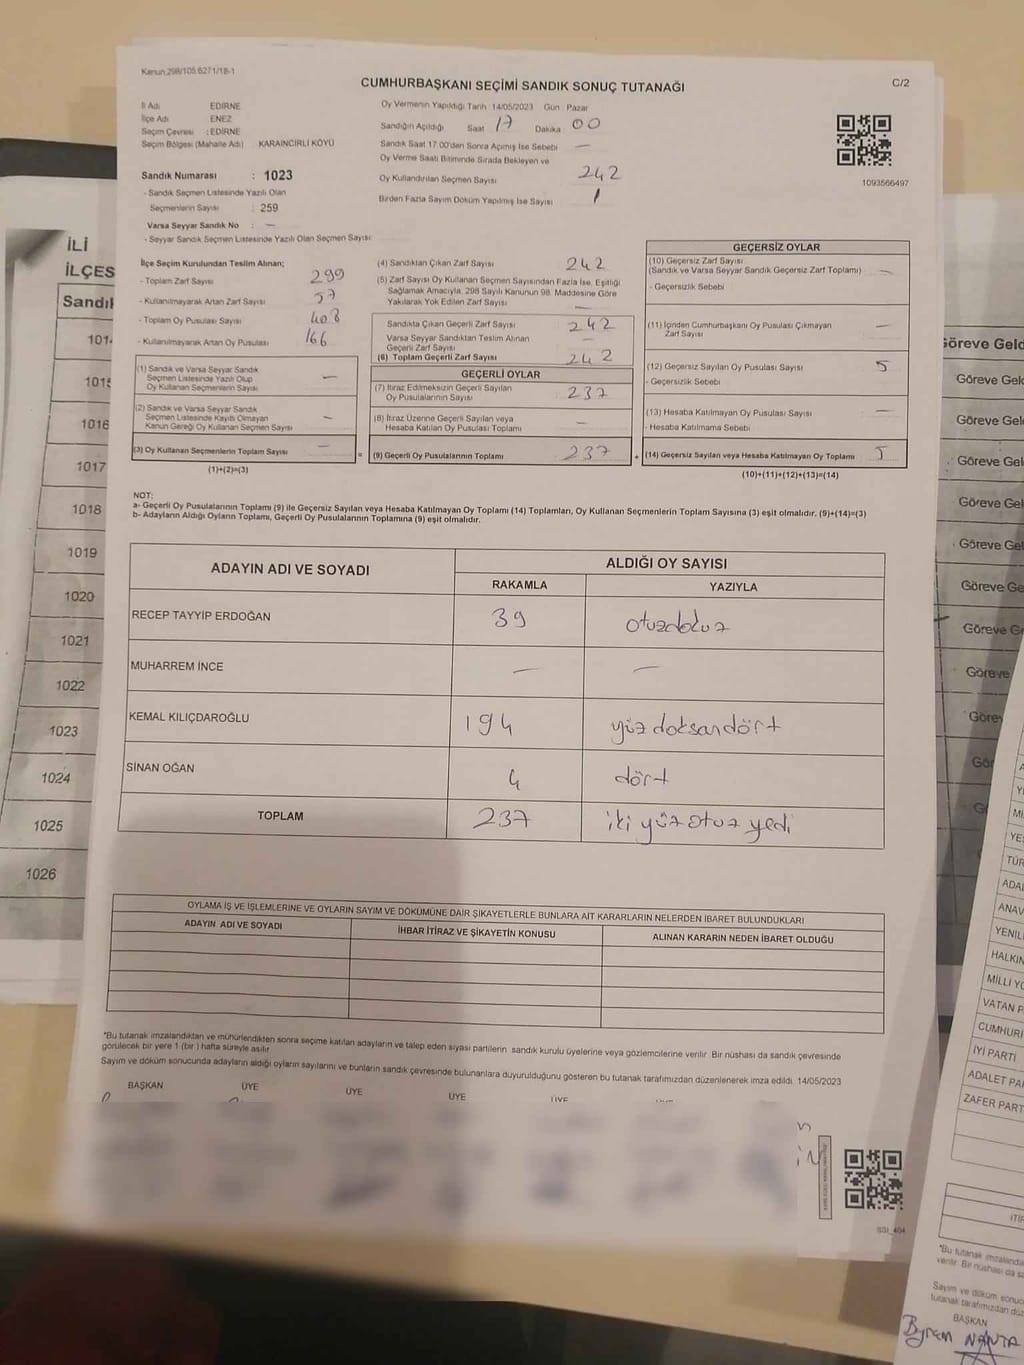 Kanun.298/105.6271/18-1
CUMHURBAŞKANI SEÇİMİ SANDIK SONUÇ TUTANAĞI
C/2
İl Adı EDİRNE
İlçe Adı ENEZ
Seçim Çevresi : EDİRNE
Seçim Bölgesi (Mahalle Adı) KARAİNCİRLİ KÖYÜ
Sandık Numarası : 1023
- Sandık Seçmen Listesinde Yazılı Olan
Seçmenlerin Sayısı : 259
Varsa Seyyar Sandık No : —
- Seyyar Sandık Seçmen Listesinde Yazılı Olan Seçmen Sayısı:
Oy Vermenin Yapıldığı Tarih :14/05/2023 Gün : Pazar
Sandığın Açıldığı Saat 17 Dakika 00
Sandık Saat 17:00'den Sonra Açımış İse Sebebi —
Oy Verme Saati Bitiminde Sırada Bekleyen ve
Oy Kullandırılan Seçmen Sayısı 242
Birden Fazla Sayım Döküm Yapılmış İse Sayısı 1
1093566497
İlçe Seçim Kurulundan Teslim Alınan;
- Toplam Zarf Sayısı 299
- Kullanılmayarak Artan Zarf Sayısı 57
- Toplam Oy Pusulası Sayısı 408
- Kullanılmayarak Artan Oy Pusulası 166
(1) Sandık ve Varsa Seyyar Sandık
Seçmen Listesinde Yazılı Olup
Oy Kullanan Seçmenlerin Sayısı —
(2) Sandık ve Varsa Seyyar Sandık
Seçmen Listesinde Kayıtlı Olmayan
Kanun Gereği Oy Kullanan Seçmen Sayısı —
(3) Oy Kullanan Seçmenlerin Toplam Sayısı —
(1)+(2)=(3)
=
(4) Sandıktan Çıkan Zarf Sayısı 242
(5) Zarf Sayısı Oy Kullanan Seçmen Sayısından Fazla İse, Eşitliği
Sağlamak Amacıyla, 298 Sayılı Kanunun 98. Maddesine Göre
Yakılarak Yok Edilen Zarf Sayısı —
Sandıkta Çıkan Geçerli Zarf Sayısı 242
Varsa Seyyar Sandıktan Teslim Alınan
Geçerli Zarf Sayısı —
(6) Toplam Geçerli Zarf Sayısı 242
GEÇERLİ OYLAR
(7) İtiraz Edilmeksizin Geçerli Sayılan
Oy Pusulalarının Sayısı 237
(8) İtiraz Üzerine Geçerli Sayılan veya
Hesaba Katılan Oy Pusulası Toplamı —
(9) Geçerli Oy Pusulalarının Toplamı 237
+
GEÇERSİZ OYLAR
(10) Geçersiz Zarf Sayısı
(Sandık ve Varsa Seyyar Sandık Geçersiz Zarf Toplamı) —
- Geçersizlik Sebebi
(11) İçinden Cumhurbaşkanı Oy Pusulası Çıkmayan
Zarf Sayısı —
(12) Geçersiz Sayılan Oy Pusulası Sayısı 5
- Geçersizlik Sebebi
(13) Hesaba Katılmayan Oy Pusulası Sayısı —
- Hesaba Katılmama Sebebi
(14) Geçersiz Sayılan veya Hesaba Katılmayan Oy Toplamı 5
(10)+(11)+(12)+(13)=(14)
NOT:
a- Geçerli Oy Pusulalarının Toplamı (9) ile Geçersiz Sayılan veya Hesaba Katılmayan Oy Toplamı (14) Toplamları, Oy Kullanan Seçmenlerin Toplam Sayısına (3) eşit olmalıdır. (9)+(14)=(3)
b- Adayların Aldığı Oyların Toplamı, Geçerli Oy Pusulalarının Toplamına (9) eşit olmalıdır.
ADAYIN ADI VE SOYADI
ALDIĞI OY SAYISI
RAKAMLA YAZIYLA
RECEP TAYYİP ERDOĞAN 39 otuzdokuz
MUHARREM İNCE — —
KEMAL KILIÇDAROĞLU 194 yüz doksandört
SİNAN OĞAN 4 dört
TOPLAM 237 iki yüz otuz yedi
OYLAMA İŞ VE İŞLEMLERİNE VE OYLARIN SAYIM VE DÖKÜMÜNE DAİR ŞİKAYETLERLE BUNLARA AİT KARARLARIN NELERDEN İBARET BULUNDUKLARI
ADAYIN ADI VE SOYADI İHBAR İTİRAZ VE ŞİKAYETİN KONUSU ALINAN KARARIN NEDEN İBARET OLDUĞU
*Bu tutanak imzalandıktan ve mühürlendikten sonra seçime katılan adayların ve talep eden siyasi partilerin sandık kurulu üyelerine veya gözlemcilerine verilir. Bir nüshası da sandık çevresinde
görülecek bir yere 1 (bir ) hafta süreyle asılır.
Sayım ve döküm sonucunda adayların aldığı oyların sayılarını ve bunların sandık çevresinde bulunanlara duyurulduğunu gösteren bu tutanak tarafımızdan düzenlenerek imza edildi. 14/05/2023
BAŞKAN ÜYE ÜYE ÜYE ÜYE
İLİ
İLÇES
Sandı
1014
1015
1016
1017
1018
1019
1020
1021
1022
1023
1024
1025
1026
Göreve Geld
Göreve Geld
Göreve Geld
Göreve Geld
Göreve Gel
Göreve Gel
Göreve Ge
Göreve G
Göreve
Görev
Gör
G
MİL
YE
TÜR
ADA
ANAV
YENİL
HALKIN
MİLLİ YO
VATAN P
CUMHURİ
İYİ PARTİ
ADALET PA
ZAFER PART
İTİR
*Bu tutanak imzaland
verilir. Bir nüshası da sa
Sayım ve döküm sonuc
tutanak tarafımızdan düz
BAŞKAN